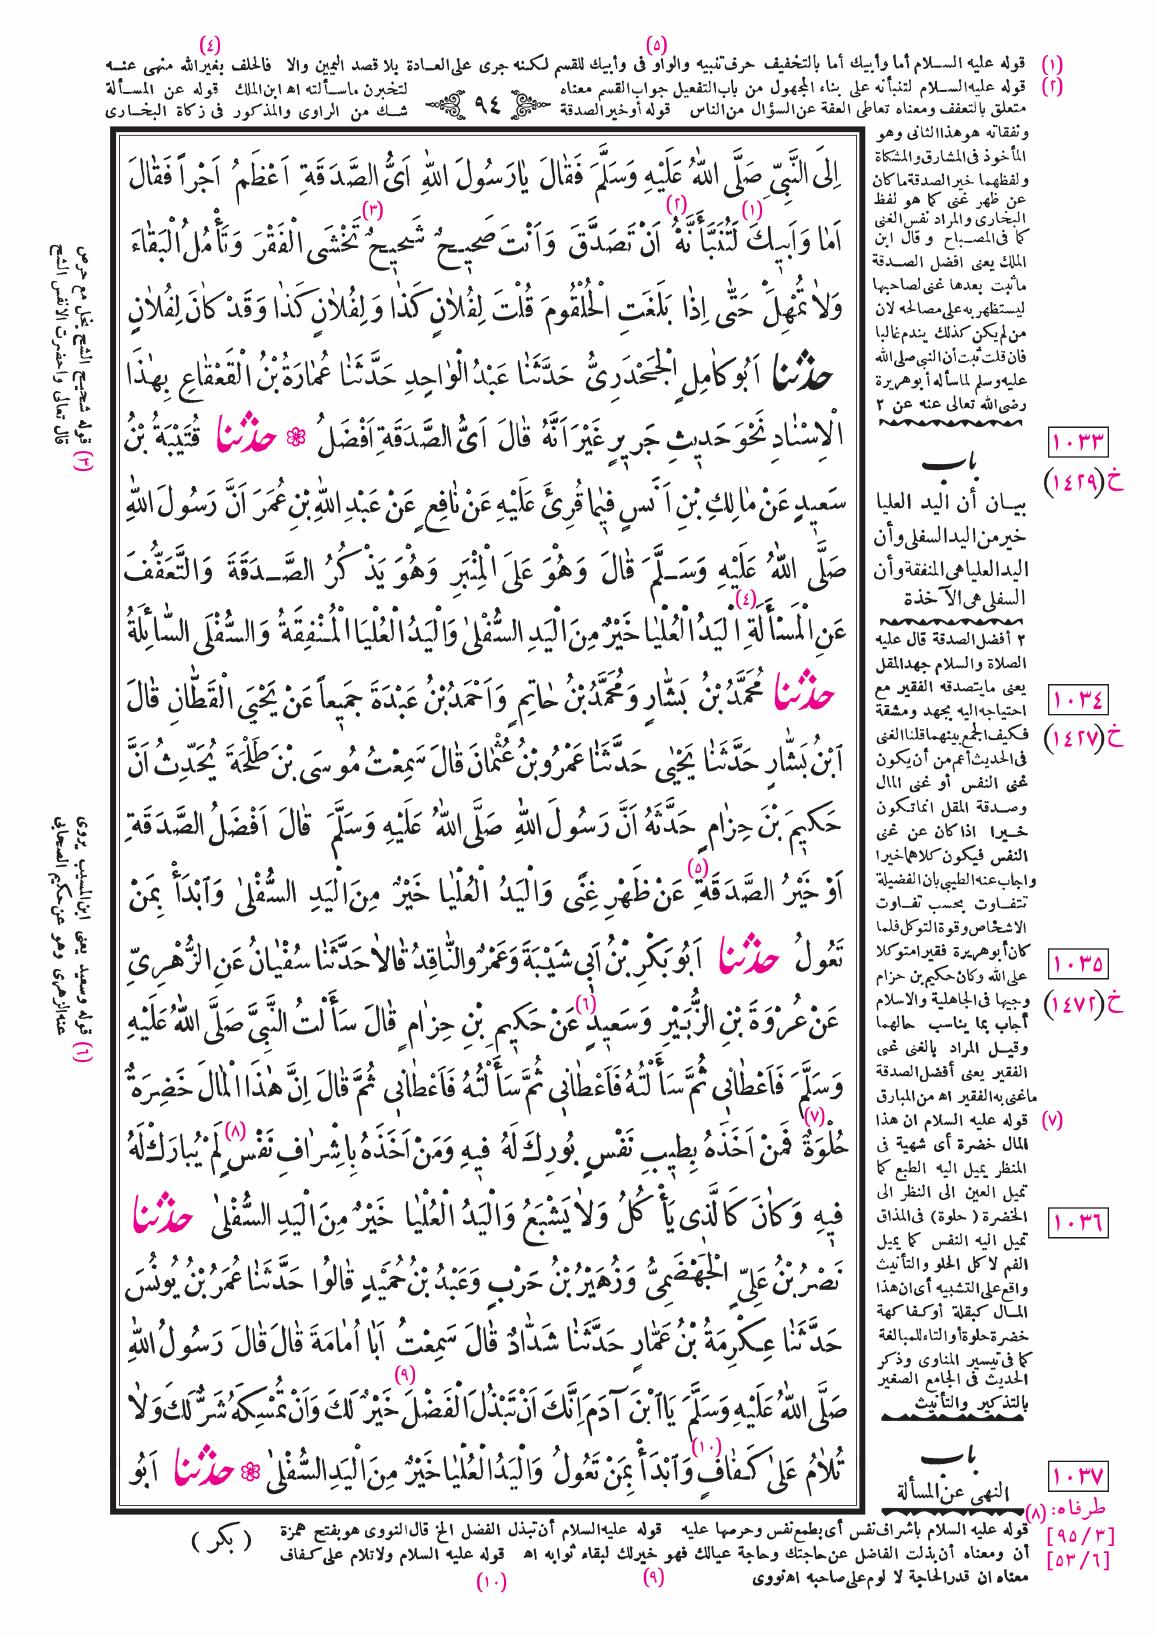 (٤) (٥)
(١) قوله عليه السلام أما وأبيك أما بالتخفيف حرف تنبيه والواو فى وأبيك للقسم لكنه جرى على العادة بلا قصد اليمين والا فالحلف بغير الله منهى عنه
(٢) قوله عليه السلام لتنبأنه على بناء المجهول من باب التفعيل جواب القسم معناه لتخبرن ماسألته اه ابن الملك قوله عن المسألة
متعلق بالتعفف ومعناه تعاطى العفة عن السؤال من الناس قوله أو خير الصدقة شك من الراوى والمذكور فى زكاة البخارى
٩٤
اِلَى النَّبِىِّ صَلَّى اللهُ عَلَيْهِ وَسَلَّمَ فَقَالَ يَارَسُولَ اللهِ اَىُّ الصَّدَقَةِ اَعْظَمُ اَجْراً فَقَالَ
اَمَا وَاَبِيكَ (١) لَتُنَبَّأَنَّهُ (٢) اَنْ تَصَدَّقَ وَاَنْتَ صَحِيحٌ شَحِيحٌ (٣) تَخْشَى الْفَقْرَ وَتَأْمُلُ الْبَقَاءَ
وَلَا تُمْهِلْ حَتَّى اِذَا بَلَغَتِ الْحُلْقُومَ قُلْتَ لِفُلَانٍ كَذَا وَلِفُلَانٍ كَذَا وَقَدْ كَانَ لِفُلَانٍ
حدثنا اَبُو كَامِلٍ الْجَحْدَرِىُّ حَدَّثَنَا عَبْدُ الْوَاحِدِ حَدَّثَنَا عُمَارَةُ بْنُ الْقَعْقَاعِ بِهٰذَا
الْاِسْنَادِ نَحْوَ حَدِيثِ جَرِيرٍ غَيْرَ اَنَّهُ قَالَ اَىُّ الصَّدَقَةِ اَفْضَلُ ❁ حدثنا قُتَيْبَةُ بْنُ
سَعِيدٍ عَنْ مَالِكِ بْنِ اَنَسٍ فِيمَا قُرِئَ عَلَيْهِ عَنْ نَافِعٍ عَنْ عَبْدِ اللهِ بْنِ عُمَرَ اَنَّ رَسُولَ اللهِ
صَلَّى اللهُ عَلَيْهِ وَسَلَّمَ قَالَ وَهُوَ عَلَى الْمِنْبَرِ وَهُوَ يَذْكُرُ الصَّدَقَةَ وَالتَّعَفُّفَ
عَنِ الْمَسْأَلَةِ (٤) اَلْيَدُ الْعُلْيَا خَيْرٌ مِنَ الْيَدِ السُّفْلَى وَالْيَدُ الْعُلْيَا الْمُنْفِقَةُ وَالسُّفْلَى السَّائِلَةُ
حدثنا مُحَمَّدُ بْنُ بَشَّارٍ وَمُحَمَّدُ بْنُ حَاتِمٍ وَاَحْمَدُ بْنُ عَبْدَةَ جَمِيعاً عَنْ يَحْيَى الْقَطَّانِ قَالَ
ابْنُ بَشَّارٍ حَدَّثَنَا يَحْيٰى حَدَّثَنَا عَمْرُو بْنُ عُثْمَانَ قَالَ سَمِعْتُ مُوسَى بْنَ طَلْحَةَ يُحَدِّثُ اَنَّ
حَكِيمَ بْنَ حِزَامٍ حَدَّثَهُ اَنَّ رَسُولَ اللهِ صَلَّى اللهُ عَلَيْهِ وَسَلَّمَ قَالَ اَفْضَلُ الصَّدَقَةِ
اَوْ خَيْرُ الصَّدَقَةِ (٥) عَنْ ظَهْرِ غِنًى وَالْيَدُ الْعُلْيَا خَيْرٌ مِنَ الْيَدِ السُّفْلٰى وَابْدَأْ بِمَنْ
تَعُولُ حدثنا اَبُو بَكْرِ بْنُ اَبِى شَيْبَةَ وَعَمْرٌو النَّاقِدُ قَالَا حَدَّثَنَا سُفْيَانُ عَنِ الزُّهْرِىِّ
عَنْ عُرْوَةَ بْنِ الزُّبَيْرِ وَسَعِيدٍ (٦) عَنْ حَكِيمِ بْنِ حِزَامٍ قَالَ سَأَلْتُ النَّبِىَّ صَلَّى اللهُ عَلَيْهِ
وَسَلَّمَ فَاَعْطَانِى ثُمَّ سَأَلْتُهُ فَاَعْطَانِى ثُمَّ سَأَلْتُهُ فَاَعْطَانِى ثُمَّ قَالَ اِنَّ هٰذَا الْمَالَ خَضِرَةٌ
حُلْوَةٌ (٧) فَمَنْ اَخَذَهُ بِطِيبِ نَفْسٍ بُورِكَ لَهُ فِيهِ وَمَنْ اَخَذَهُ بِاِشْرَافِ نَفْسٍ (٨) لَمْ يُبَارَكْ لَهُ
فِيهِ وَكَانَ كَالَّذِى يَأْكُلُ وَلَا يَشْبَعُ وَالْيَدُ الْعُلْيَا خَيْرٌ مِنَ الْيَدِ السُّفْلٰى حدثنا
نَصْرُ بْنُ عَلِىٍّ الْجَهْضَمِىُّ وَزُهَيْرُ بْنُ حَرْبٍ وَعَبْدُ بْنُ حُمَيْدٍ قَالُوا حَدَّثَنَا عُمَرُ بْنُ يُونُسَ
حَدَّثَنَا عِكْرِمَةُ بْنُ عَمَّارٍ حَدَّثَنَا شَدَّادٌ قَالَ سَمِعْتُ اَبَا اُمَامَةَ قَالَ قَالَ رَسُولُ اللهِ
صَلَّى اللهُ عَلَيْهِ وَسَلَّمَ يَا ابْنَ آدَمَ اِنَّكَ اَنْ تَبْذُلَ الْفَضْلَ (٩) خَيْرٌ لَكَ وَاَنْ تُمْسِكَهُ شَرٌّ لَكَ وَلَا
تُلَامُ عَلَى كَفَافٍ (١٠) وَابْدَأْ بِمَنْ تَعُولُ وَالْيَدُ الْعُلْيَا خَيْرٌ مِنَ الْيَدِ السُّفْلٰى ❁ حدثنا اَبُو
ونفقاته هو هذا الثانى وهو
المأخوذ فى المشارق والمشكاة
ولفظهما خير الصدقة ما كان
عن ظهر غنى كما هو لفظ
البخارى والمراد نفس الغنى
كما فى المصباح وقال ابن
الملك يعنى افضل الصدقة
ماثبت بعدها غنى لصاحبها
ليستظهر به على مصالحه لان
من لم يكن كذلك يندم غالبا
فان قلت ثبت أن النبى صلى الله
عليه وسلم لما سأله أبو هريرة
رضى الله تعالى عنه عن ٢
باب
بيان أن اليد العليا
خير من اليد السفلى وأن
اليد العليا هى المنفقة وأن
السفلى هى الآخذة
٢ أفضل الصدقة قال عليه
الصلاة والسلام جهد المقل
يعنى مايتصدقه الفقير مع
احتياجه اليه بجهد ومشقة
فكيف الجمع بينهما قلنا الغنى
فى الحديث أعم من أن يكون
غنى النفس أو غنى المال
وصدقة المقل انما تكون
خيرا اذا كان عن غنى
النفس فيكون كلاهما خيرا
واجاب عنه الطيبى بان الفضيلة
تتفاوت بحسب تفاوت
الاشخاص وقوة التوكل فلما
كان أبو هريرة فقيرا متوكلا
على الله وكان حكيم بن حزام
وجيها فى الجاهلية والاسلام
أجاب بما يناسب حالهما
وقيل المراد بالغنى غنى
الفقير يعنى أفضل الصدقة
ماغنى به الفقير اه من المبارق
(٧) قوله عليه السلام ان هذا
المال خضرة أى شهية فى
المنظر يميل اليه الطبع كما
تميل العين الى النظر الى
الخضرة (حلوة) فى المذاق
تميل اليه النفس كما يميل
الفم لاكل الحلو والتأنيث
واقع على التشبيه أى ان هذا
المال كبقلة أو كفاكهة
خضرة حلوة أو التاء للمبالغة
كما فى تيسير المناوى وذكر
الحديث فى الجامع الصغير
بالتذكير والتأنيث
باب
النهى عن المسألة
١٠٣٣
خ (١٤٢٩)
١٠٣٤
خ (١٤٢٧)
١٠٣٥
خ (١٤٧٢)
١٠٣٦
١٠٣٧
طرفاه:
[٩٥/٣]
[٥٣/٦]
(٣) قوله شحيح الشح بخل مع حرص
قال تعالى واحضرت الانفس الشح
(٦) قوله وسعيد يعنى ابن المسيب يروى
عنه الزهرى وهو عن حكيم الصحابى
(٨) قوله عليه السلام بأشراف نفس أى بطمع نفس وحرصها عليه قوله عليه السلام أن تبذل الفضل الخ قال النووى هو بفتح همزة
أن ومعناه أن بذلت الفاضل عن حاجتك وحاجة عيالك فهو خير لك لبقاء ثوابه اه قوله عليه السلام ولا تلام على كفاف
معناه ان قدر الحاجة لا لوم على صاحبه اه نووى
(٩) (١٠)
( بكر )